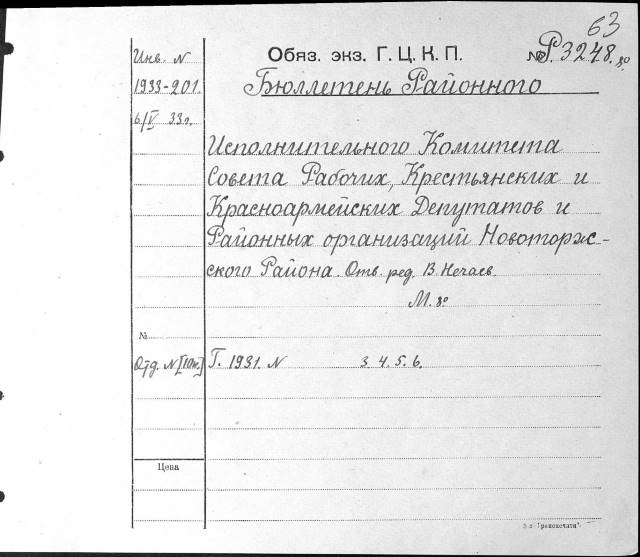 63
Инв. N
Обяз. экз. Г. Ц. К. П.
№ Р. 3248. 8°
1933-201.
Бюллетень Районного
6/V 33г.
Исполнительного Комитета
Совета Рабочих, Крестьянских и
Красноармейских Депутатов и
Районных организаций Новоторж-
ского Района. Отв. ред. В. Нечаев.
М. 8°
№
Отд. N
Г. 1931. N 3. 4. 5. 6.
Цена